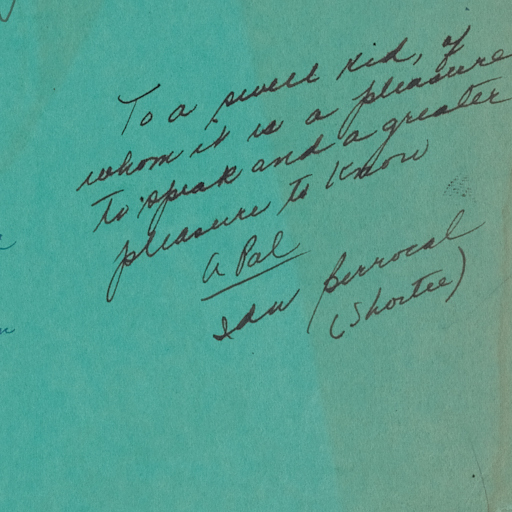 To a swell kid, of
whom it is a pleasure
to speak and a greater
pleasure to know
A Pal
Berrocal
(Shortee)